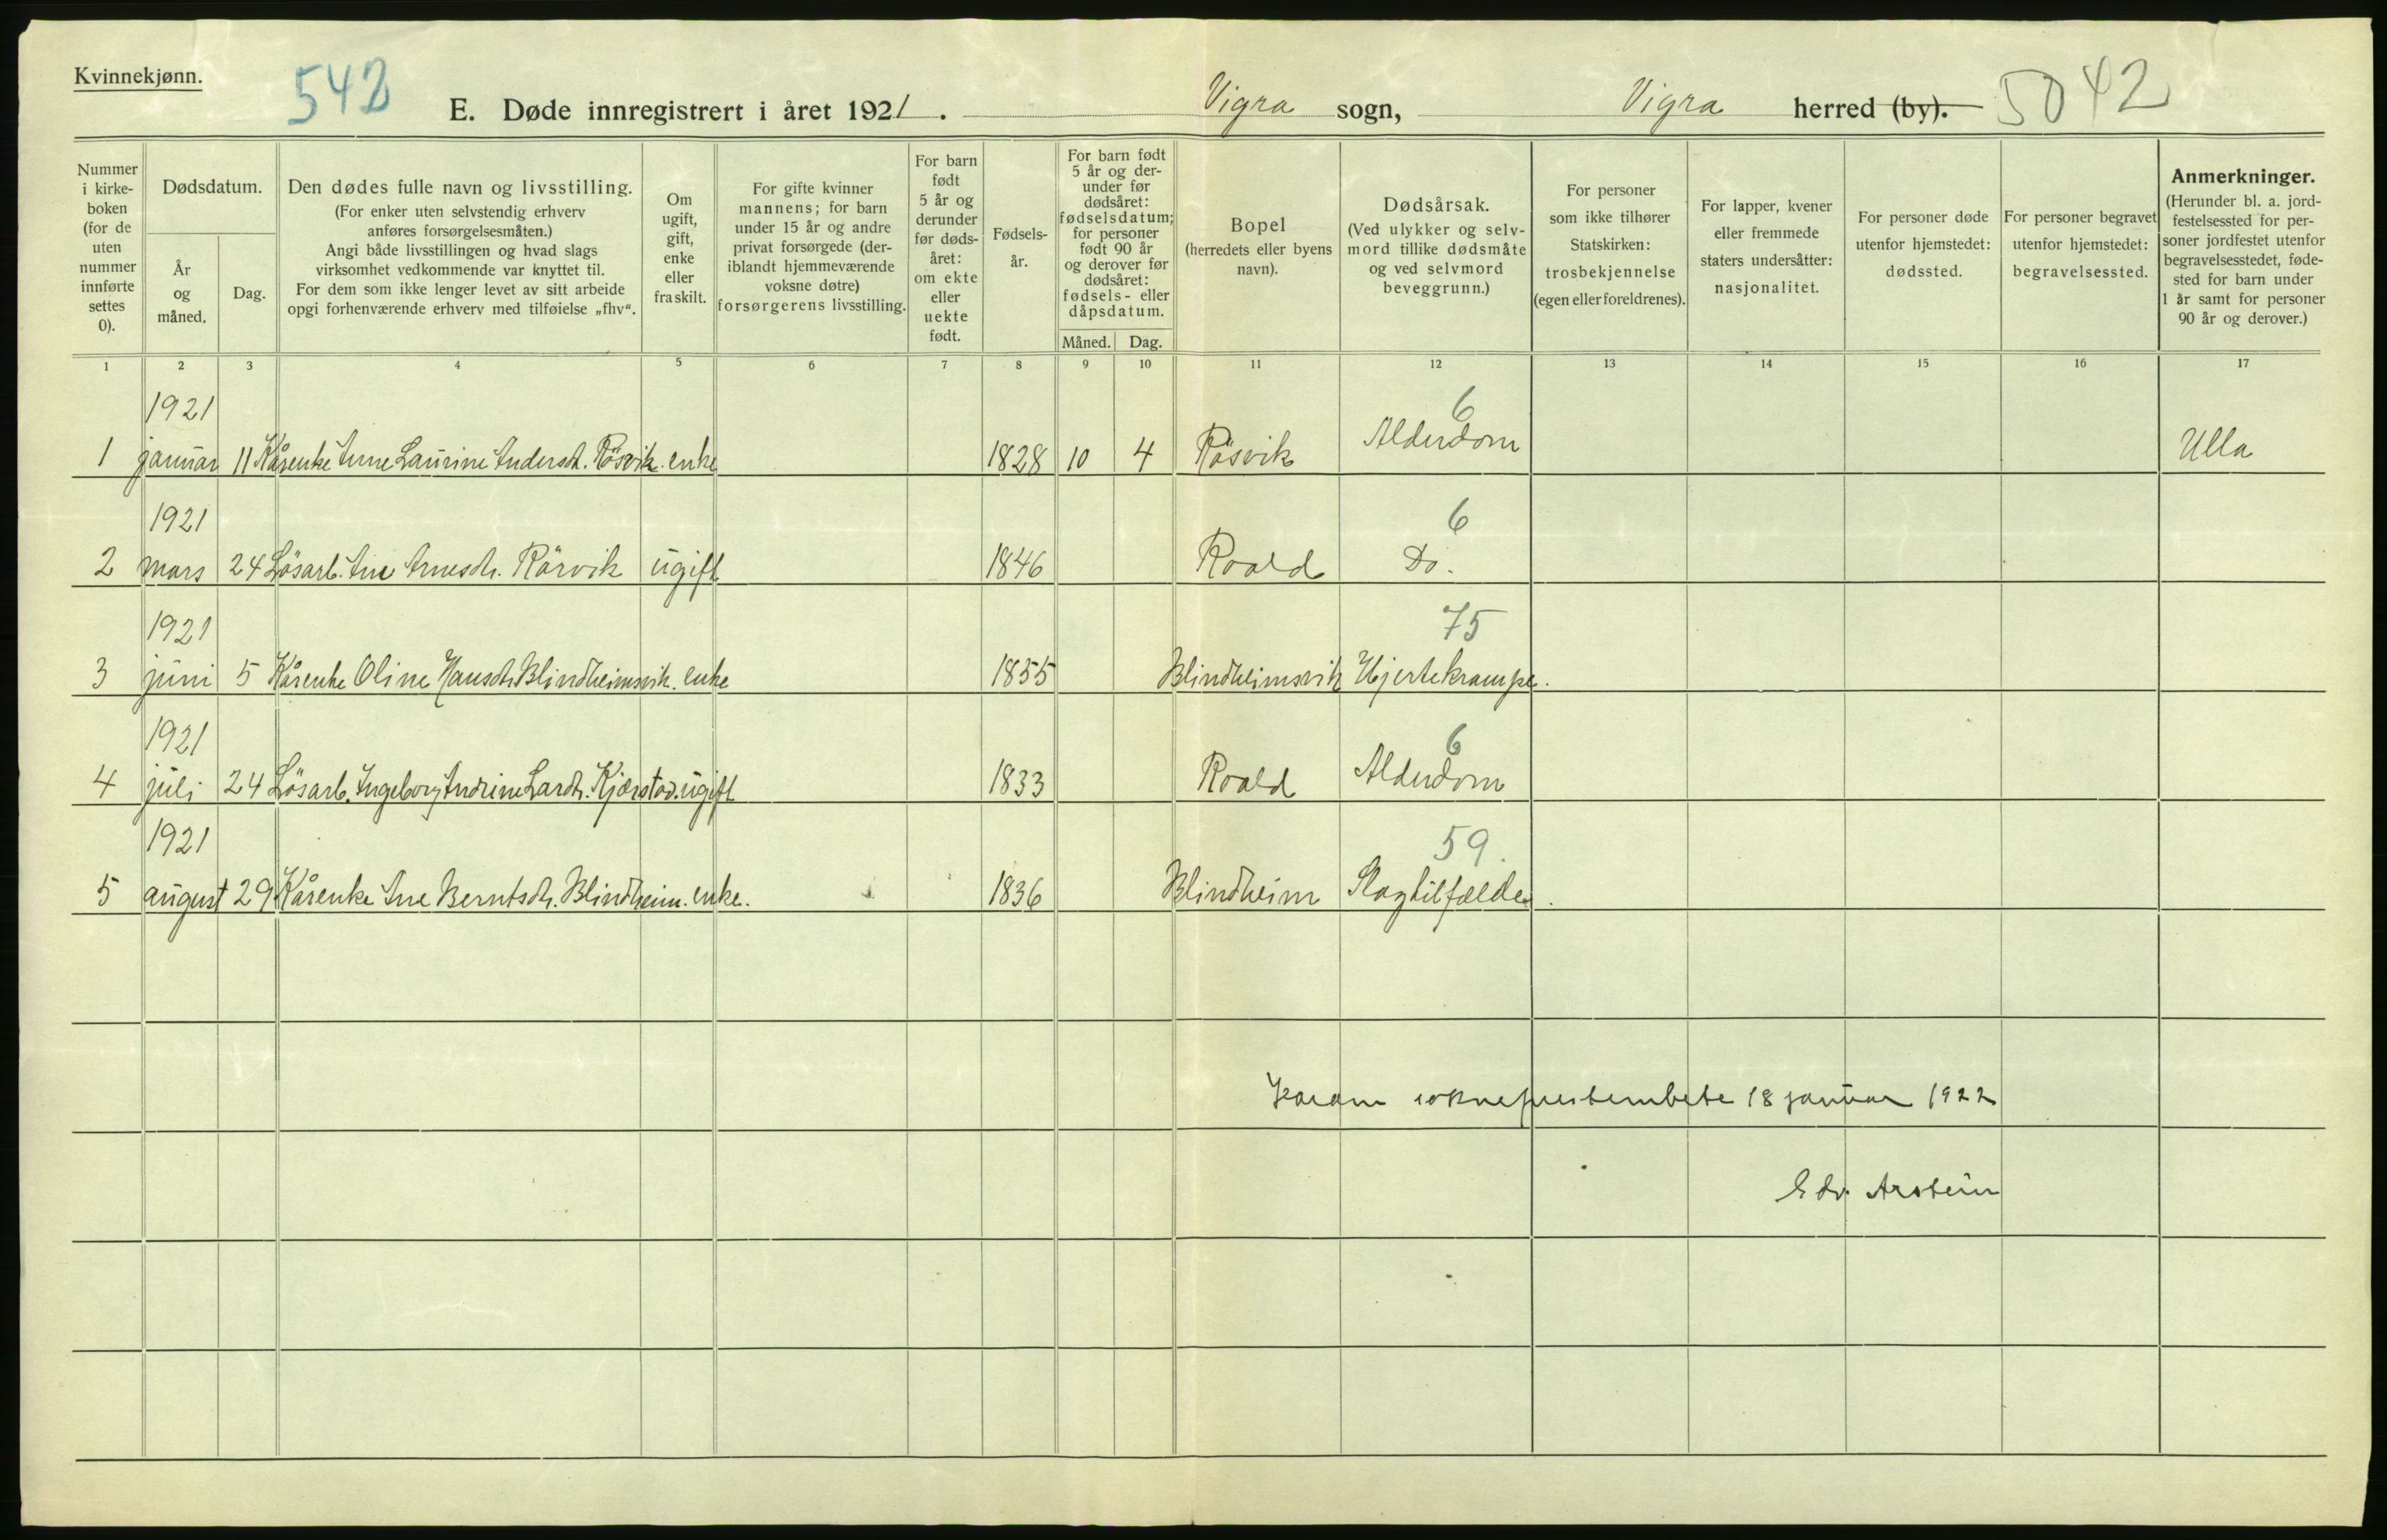 Kvinnekjønn.
542
E. Døde innregistrert i året 1921. Vigra sogn, Vigra herred (by). 5042
Nummer i kirke- boken (for de uten nummer innførte settes 0).
Dødsdatum.
År og måned.
Dag.
Den dødes fulle navn og livsstilling.
(For enker uten selvstendig erhverv
anføres forsørgelsesmåten.)
Angi både livsstillingen og hvad slags
virksomhet vedkommende var knyttet til.
For dem som ikke lenger levet av sitt arbeide
opgi forhenværende erhverv med tilføielse „fhv“.
Om ugift, gift, enke eller fraskilt.
For gifte kvinner
mannens; for barn
under 15 år og andre
privat forsørgede (der-
iblandt hjemmeværende
voksne døtre)
forsørgerens livsstilling.
For barn født 5 år og derunder før døds- året: om ekte eller uekte født.
Fødsels- år.
For barn født
5 år og der-
under før
dødsåret:
fødselsdatum;
for personer
født 90 år
og derover før
dødsåret:
fødsels- eller
dåpsdatum.
Måned. Dag.
Bopel
(herredets eller byens
navn).
Dødsårsak.
(Ved ulykker og selv-
mord tillike dødsmåte
og ved selvmord
beveggrunn.)
For personer
som ikke tilhører
Statskirken:
trosbekjennelse
(egen eller foreldrenes).
For lapper, kvener
eller fremmede
staters undersåtter:
nasjonalitet.
For personer døde
utenfor hjemstedet:
dødssted.
For personer begravet
utenfor hjemstedet:
begravelsessted.
Anmerkninger.
(Herunder bl. a. jord-
festelsessted for per-
soner jordfestet utenfor
begravelsesstedet, føde-
sted for barn under
1 år samt for personer
90 år og derover.)
1 2 3 4 5 6 7 8 9 10 11 12 13 14 15 16 17
1921 6
1 januar 11 Kårenke Anne Laurine Andersd. Røsvik. enke 1828 10 4 Røsvik Alderdom Ulla
1921 6
2 mars 24 Løsarb. Ane Arnesdr. Rørvik ugift 1846 Roald Do.
1921 75
3 juni 5 Kårenke Oline Hansdr. Blindheimsvik. enke 1855 Blindheimsvik Hjertekrampe.
1921 6
4 juli 24 Løsarb. Ingeborg Andrine Larsdr. Kjærstad. ugift 1833 Roald Alderdom
1921 59.
5 august 29 Kårenke Ane Berntsdr. Blindheim. enke. 1836 Blindheim Slagtilfælde.
sokneprestembete 18 januar 1922
Edv. Arstein